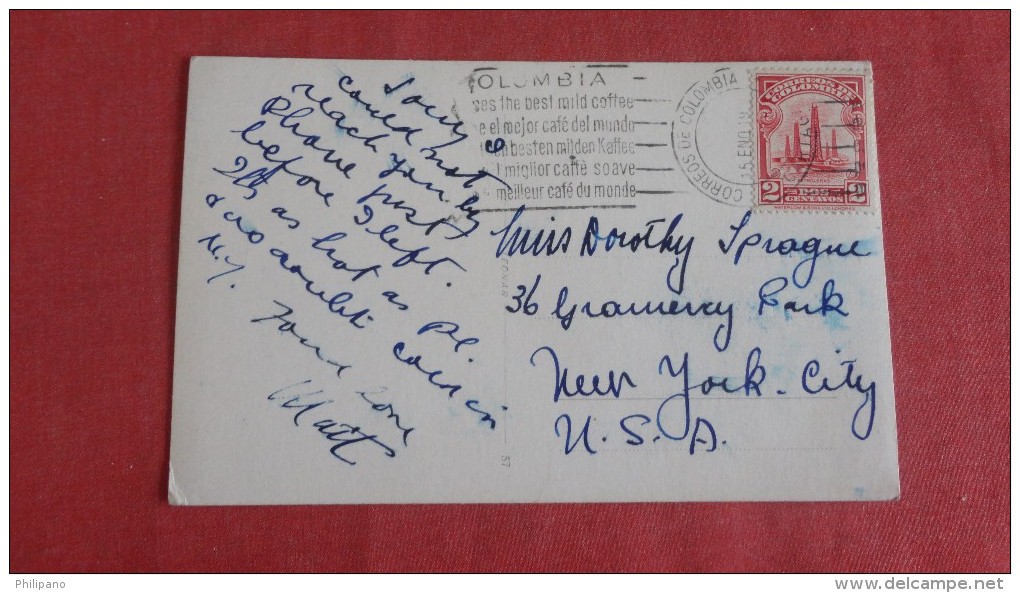 Sorry
could not
reach you by
Phone just
before I left.
It's as hot as
and no doubt cold in
N.Y. Fond love
Matt
OLUMBIA
ces the best mild coffee
e el mejor café del mundo
en besten milden Kaffee
l miglior caffè soave
meilleur café du monde
CORREOS DE COLOMBIA
15 ENO
CORREOS DE
COLOMBIA
2 DOS 2
CENTAVOS
Miss Dorothy Sprague
36 Gramercy Park
New York City
U.S.A.
57
Philipano
www.delcampe.net